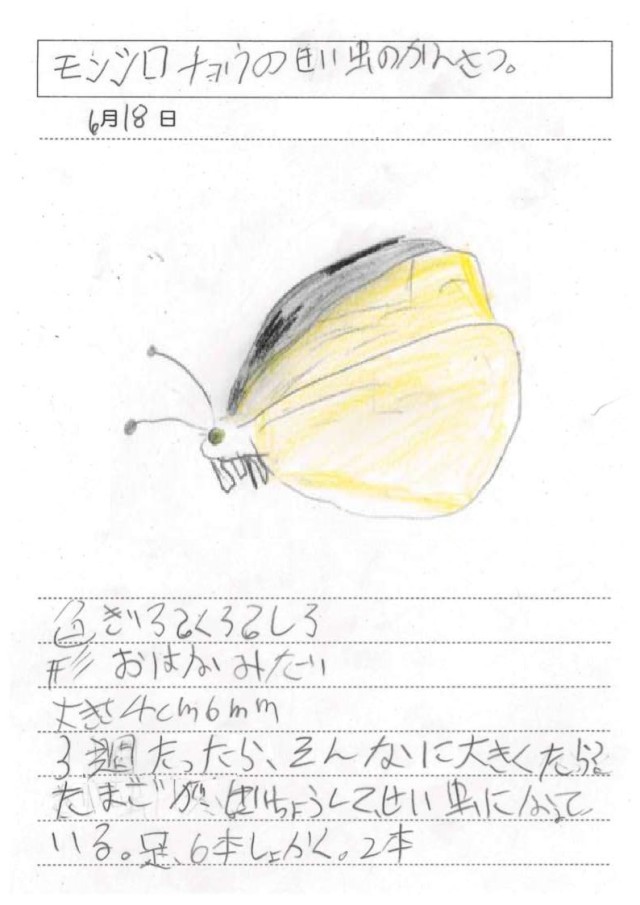 モンシロチョウのせい虫のかんさつ。
6月18日
色 きいろとくろとしろ
形 おはなみたい
大きさ4cm6mm
3週たったら、そんなに大きく
たまごが、せいちょうして、せい虫になって
いる。足、6本しょかく。2本